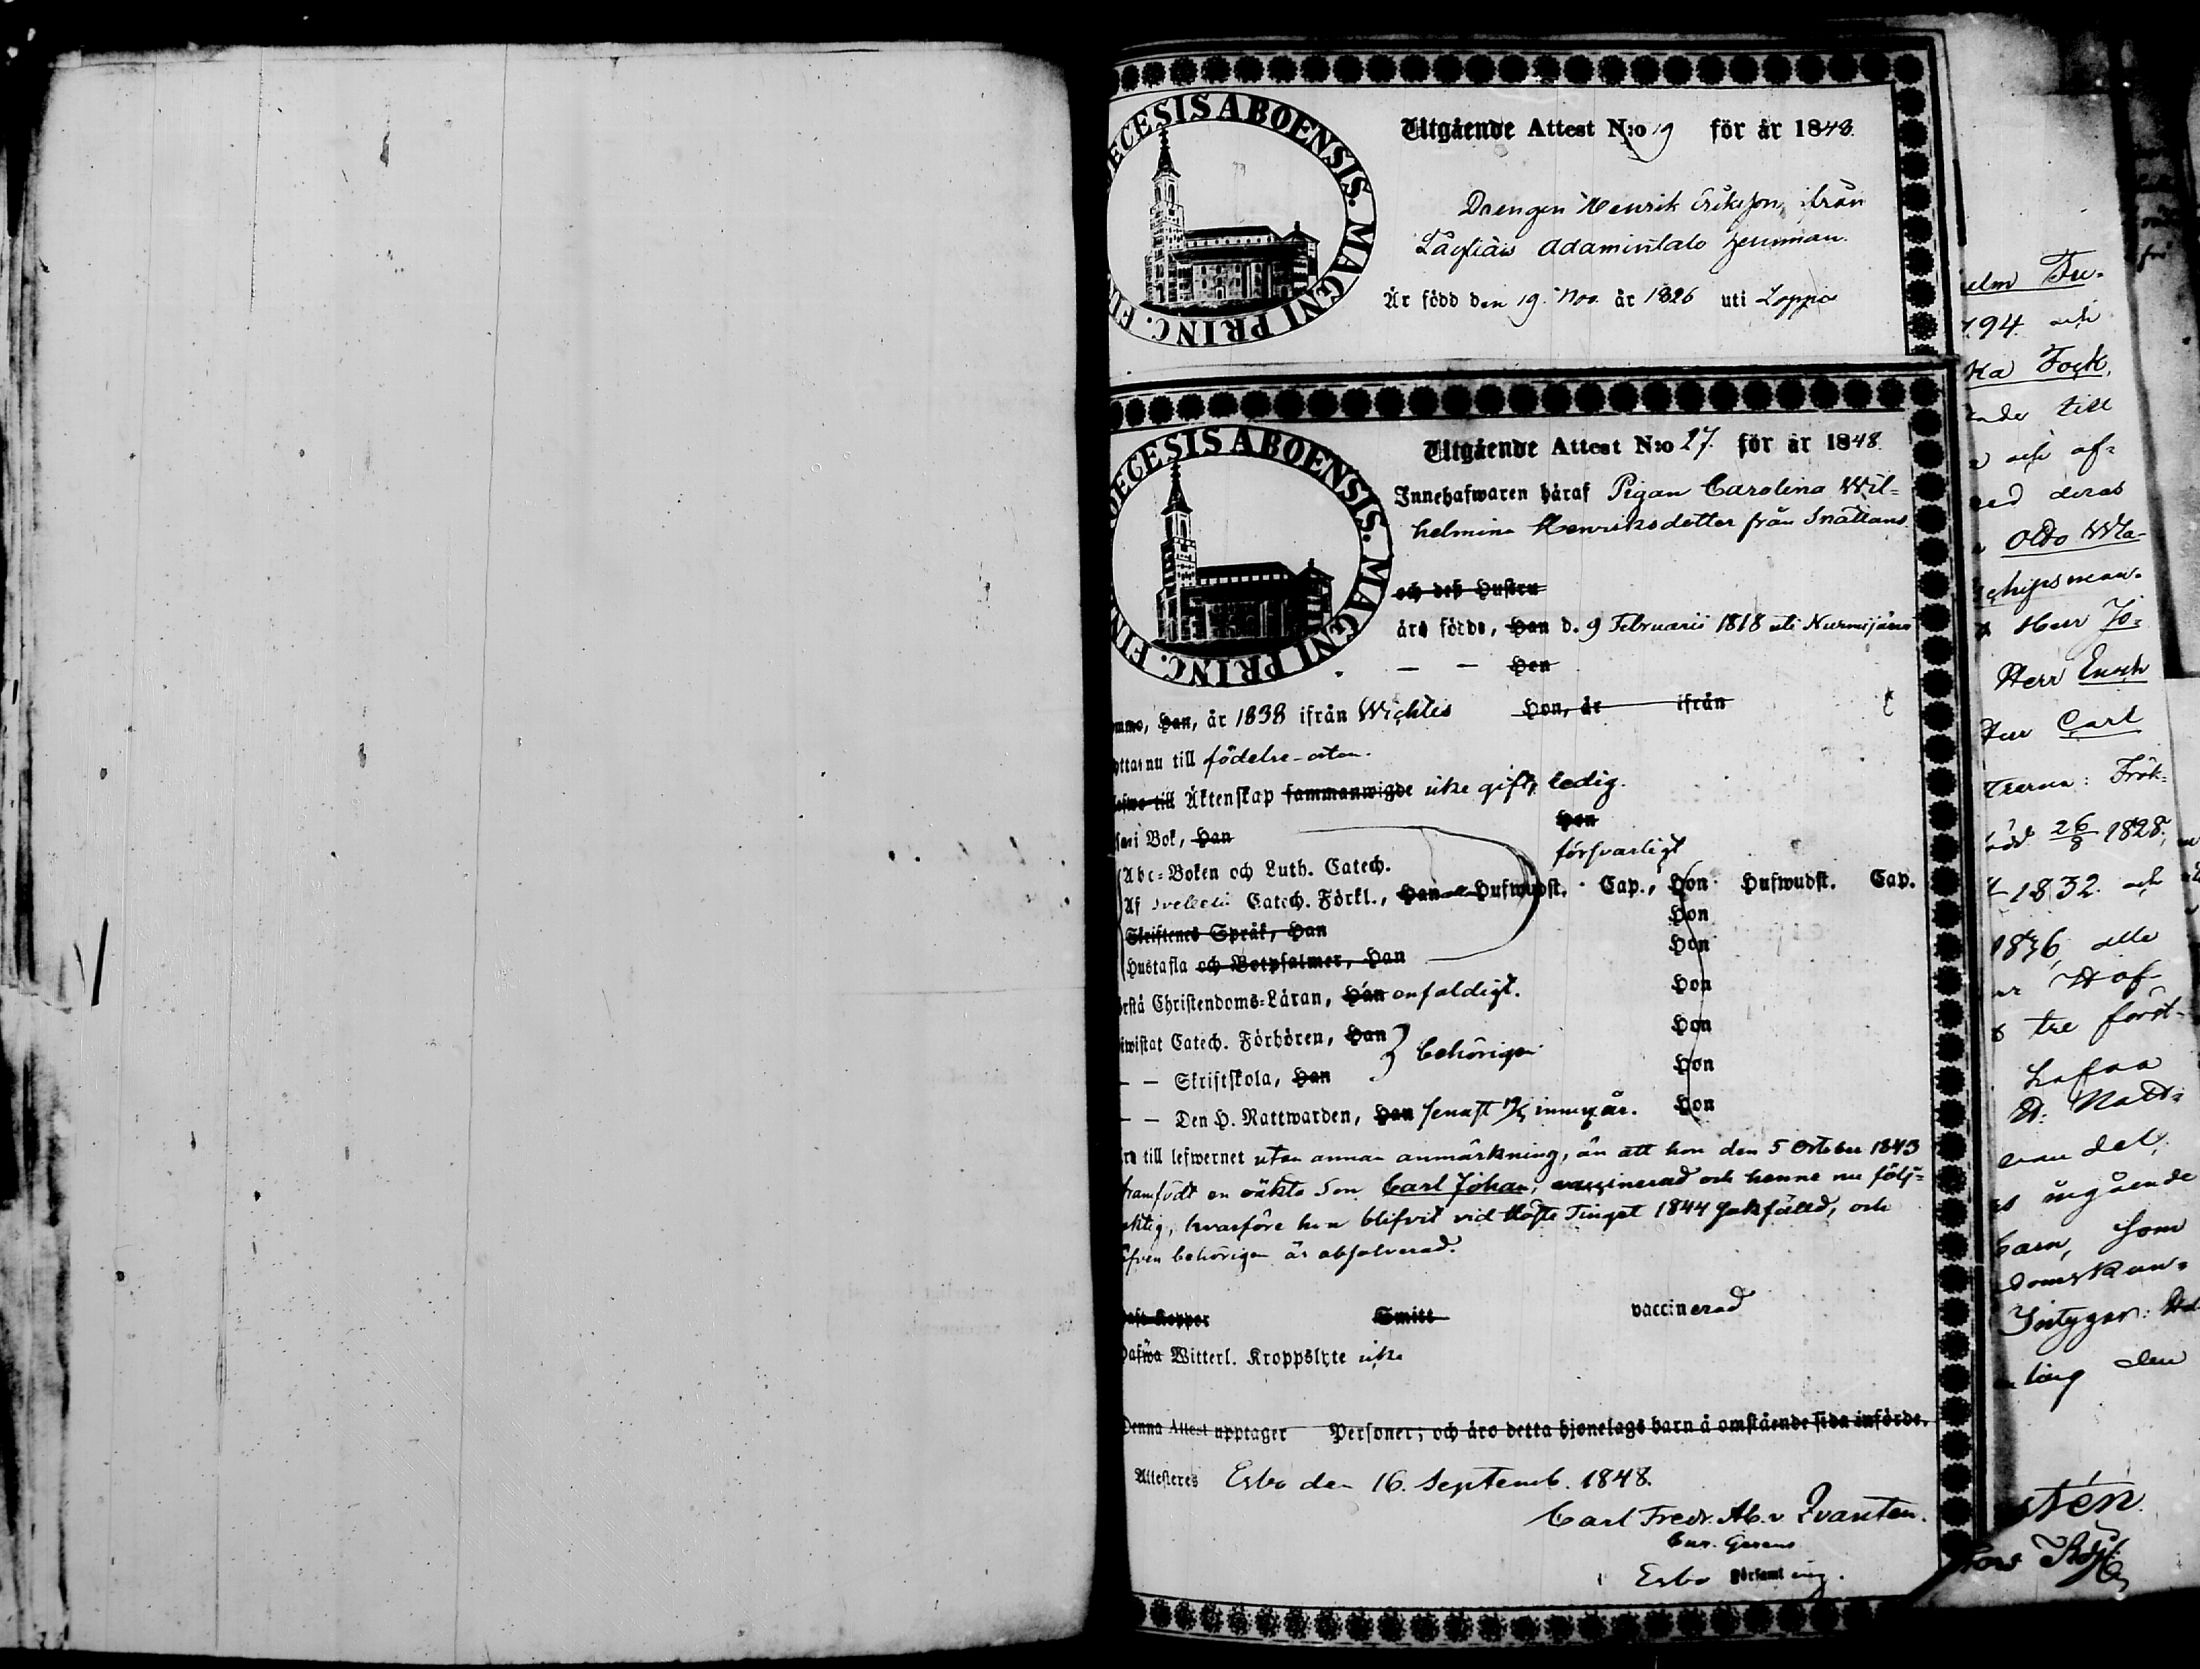 DECESIS ABOENSIS. MAGNI PRINC. FIN
Utgående Attest N:o 19 för år 1848.
Drengen Henrik Eriksson ifrån
Adamintalo
Är född den 19. Nov. år 1826 uti Loppis
OECESIS ABOENSIS. MAGNI PRINC. FIN
Utgående Attest N:o 27. för år 1848.
Innehafwaren häraf Pigan Carolina Wil-
helmina Henriksdotter från Snättans
och deß Hustru
äro födde, Han d. 9 Februarii 1818 uti Nurmijärvi
— — Hon
omme, Han, år 1838 ifrån Wichtis Hon, år ifrån
ottas nu till födelse-orten.
lefwe till Äktenskap sammanwigde icke gift, ledig.
sari Bok, Han Hon
försvarligt
Abc-Boken och Luth. Catech.
Af Svebelii Catech. Förkl., Han Hufwudst. Cap., Hon Hufwudst. Cap.
Skriftenes Språk, Han Hon
Hustafla och Botpsalmer, Han Hon
örstå Christendoms-Läran, Han enfaldigt. Hon
iwistat Catech. Förhören, Han behörigen Hon
— — Skriftskola, Han Hon
— — Den H. Nattwarden, Han senast innev. år. Hon
ra till lefwernet utan annan anmärkning, än att hon den 5 October 1843
framfödt en oäkta Son Carl Johan, vaccinerad och henne nu följ-
aktig, hvarföre hon blifvit vid Höste Tinget 1844 sakfälld, och
äfven behörigen är absolverad.
Haft Koppor Smitt vaccinerad
Hafwa Witterl. Kroppslyte icke
Denna Attest upptager Personer; och äro detta hjonelags barn å omstående sida införde.
Attesteres Esbo den 16. Septemb. 1848.
Carl Fredr. Ab. v Zvanten.
Cur. Gerens
Esbo Församling.
elm Fre-
794. och
ka Fock,
ande till
och af-
med deras
Otto Wla-
Herr Jo-
Herr Enoch
Herr Carl
trarna: Frök-
född 26/8 1828,
1832 och
1836, alla
tre först-
Nadd-
angående
barn, som
domskun-
Intygar:
ling den
sten